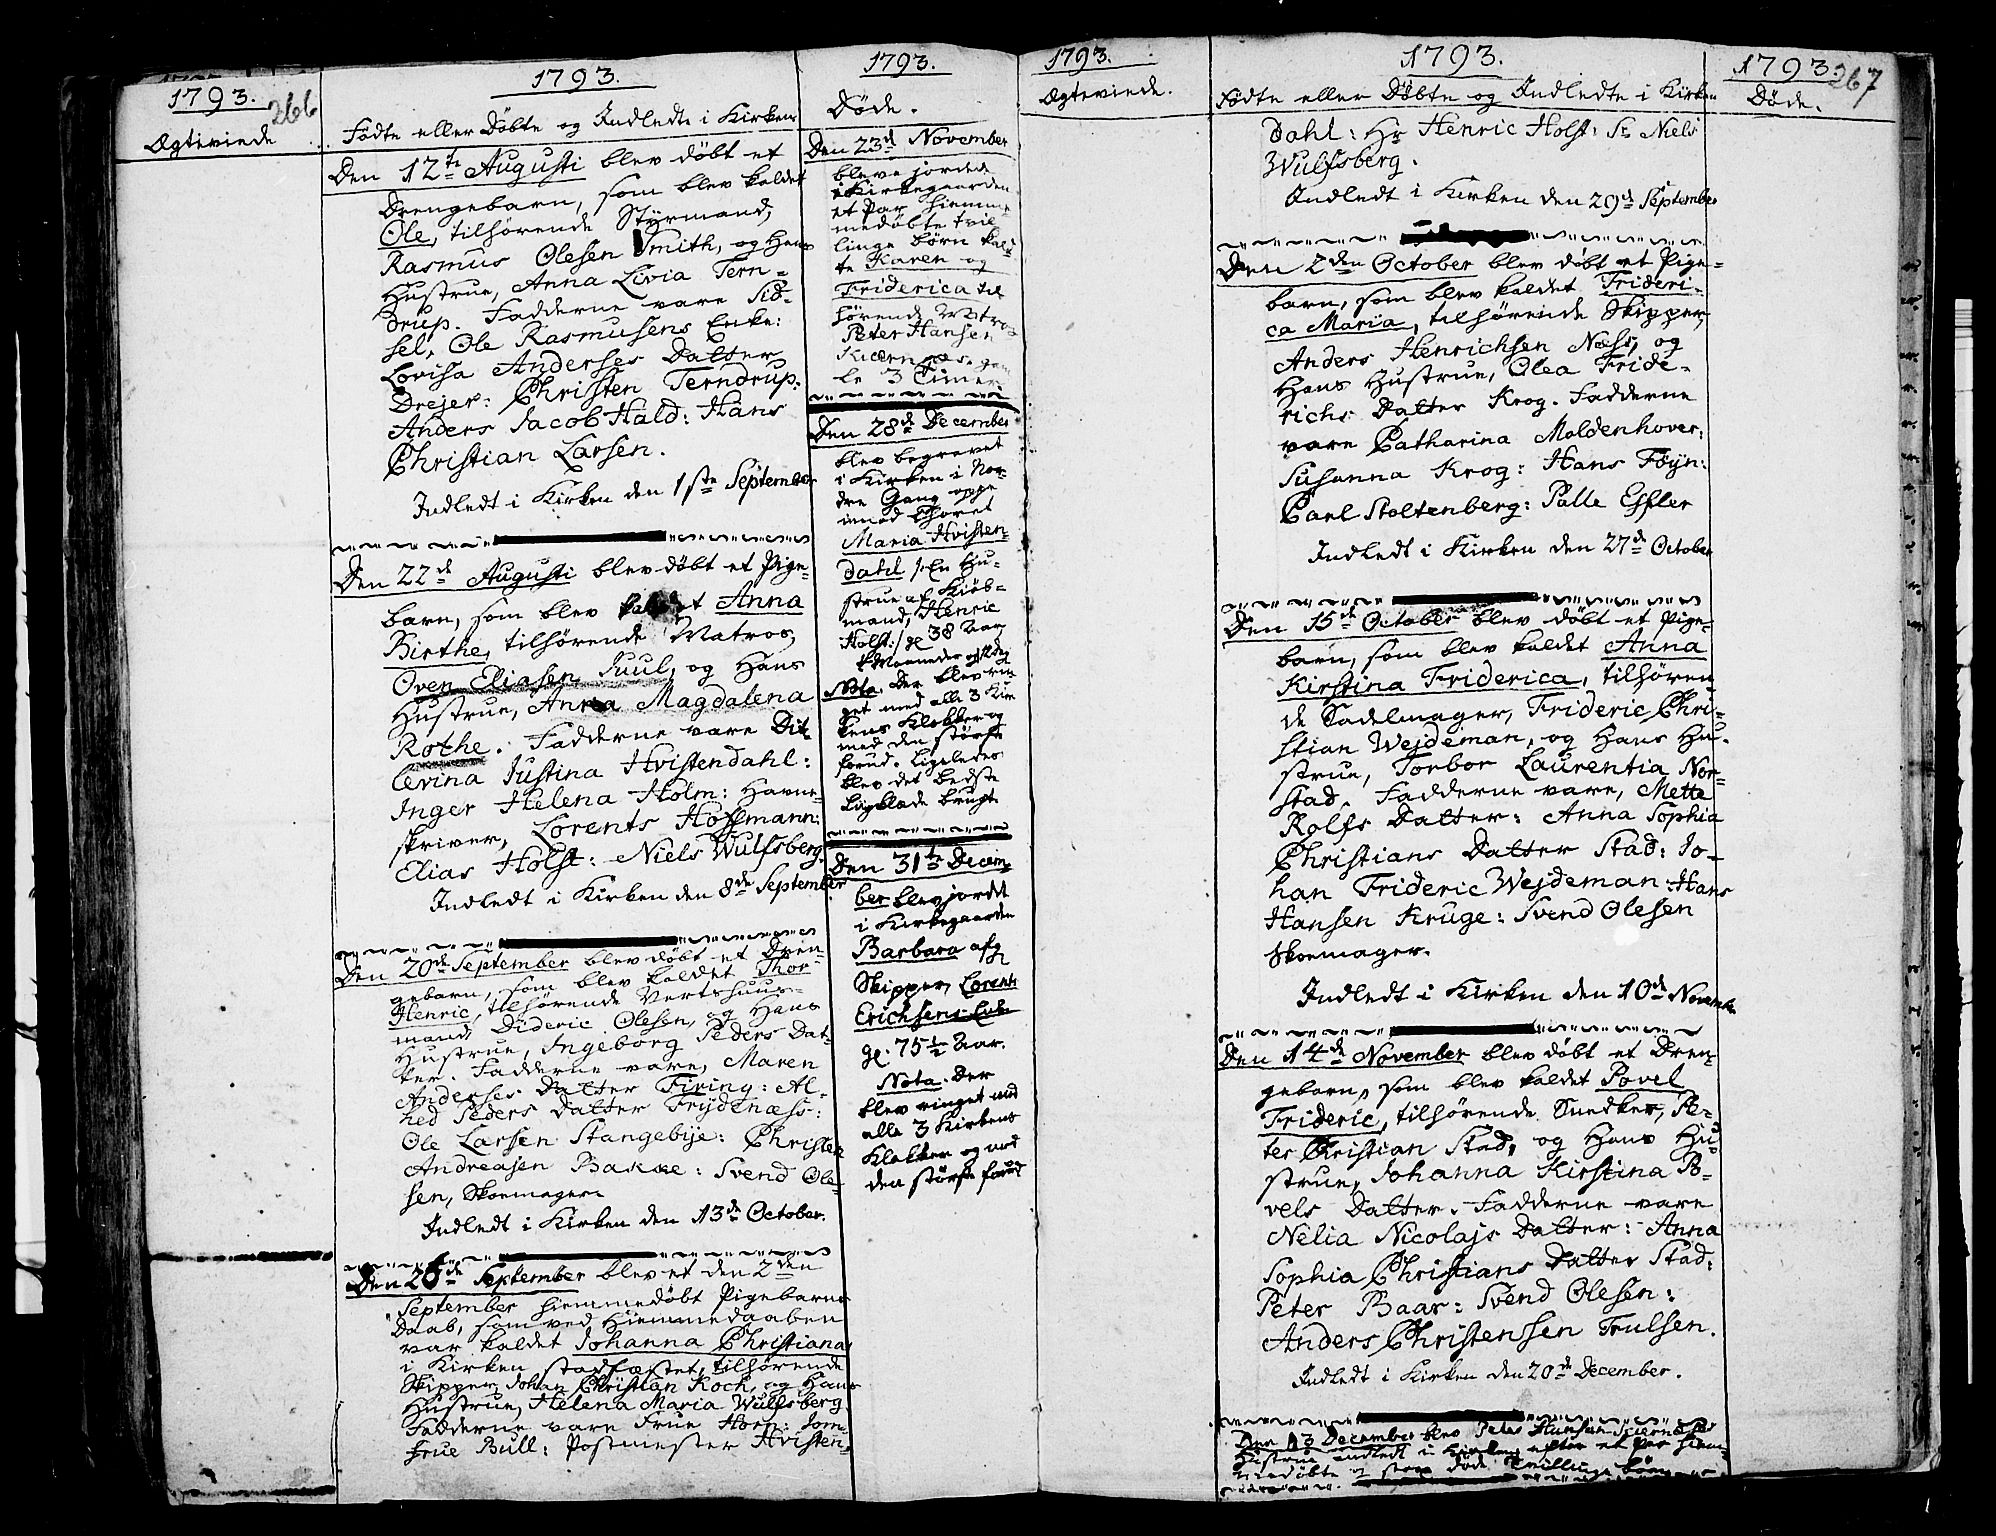 1793.
266
Ægteviede
1793.
Fødte eller Døbte og Indledte i Kirken
Den 12te Augusti blev døbt et
Drengebarn, som blev kaldet
Ole, tilhørende Styrmand,
Rasmus Olesen Smith, og Hans
Hustrue, Anna Livia Tern-
drup. Fadderne vare Sid-
sel, Ole Rasmusens Enke:
Lovisa Anderses Datter
Drejer: Christen Terndrup:
Anders Jacob Hald: Hans
Christian Larsen.
Indledt i Kirken den 1ste September
Den 22de Augusti blev døbt et Pige-
barn, som blev kaldet Anna
Birthe, tilhørende Matros,
Oven Eliasen Juul, og Hans
Hustrue, Anna Magdalena
Rothe. Fadderne vare Dit-
levina Justina Hvistendahl:
Inger Helena Holm: Havne-
skriver, Lorents Hoffmann:
Elias Holst: Niels Wulfsberg.
Indledt i Kirken den 8de September
Den 20de September blev døbt et Dren-
gebarn, som blev kaldet Thor
Henric, tilhørende Vertshuus-
mand, Dideric Olesen, og Hans
Hustrue, Ingeborg Peders Dat-
ter. Fadderne vare, Maren
Anderses Datter Firing: Al-
hed Peders Datter Frydenæss:
Ole Larsen Stangebye: Christen
Andreasen Bakke: Svend Ole-
sen, Skoemager.
Indledt i Kirken den 13de October.
Den 26de September blev et den 2den
September hiemmedøbt Pigebarns
Daab, som ved Hiemmedaaben
var kaldet Johanna Christiana
i Kirken stadfæstet, tilhørende
Skipper, Johan Christian Koch, og Hans
Hustrue, Helena Maria Wulfsberg
Fadderne vare Frue Horn: Jom-
frue Bull: Postmester Hvisten-
1793.
Døde.
Den 23de November
bleve jordede
i Kirkegaarden
et Par hiemme-
medøbte tvil
linge børn kal-
te Karen og
Friderica til
hørende Matros
Peter Hansen
Kiærnæs, gam
le 3 Timer.
Den 28de December
blev begravet
i Kirken i Nor-
dre Gang oppe
imod Choret
Maria Hvisten-
dahl /: En Hu-
strue af Kiøb-
mand, Henric
Holst:/ gl 38 Aar
Maaneder og Dag
Nota. Der blev rin
get med alle 3 Kir
kens Klokker og
med den største
forud. Ligeledes
blev det bedste
Ligklæde brugt
Den 31te Decem-
ber blev jordet
i Kirkegaarden
Barbara afg
Skipper, Lorents
Erichsens Enke
gl. 75 1/2 Aar.
Nota. Der
blev ringet med
alle 3 Kirkens
Klokker og med
den største forud
1793.
Ægteviede.
1793.
Fødte eller Døbte og Indledte i Kirken
Dahl: Hr Henric Holst: Sr Niels
Wulfsberg.
Indledt i Kirken den 29de September
Den 2den October blev døbt et Pige-
barn, som blev kaldet Frideri-
ca Maria, tilhørende Skipper,
Anders Henrichsen Næss, og
Hans Hustrue, Olea Fride-
richs Datter Krog. Fadderne
vare Catharina Moldenhover:
Susanna Krog: Hans Föyn:
Carl Stoltenberg: Palle Essler
Indledt i Kirken den 27de October
Den 15de October blev døbt et Pige-
barn, som blev kaldet Anna
Kirstina Friderica, tilhøren-
de Sadelmager, Frideric Chri-
stian Wejdeman, og Hans Hu-
strue, Torbor Laurentia Nor-
stad. Fadderne vare, Mette
Rolfs Datter: Anna Sophia
Christians Datter Stad: Jo-
han Frideric Wejdeman: Hans
Hansen Kruge: Svend Olesen
Skoemager.
Indledt i Kirken den 10de November
Den 14de November blev døbt et Dren-
gebarn, som blev kaldet Povel
Frideric, tilhørende Snedker, Pe-
ter Christian Stad, og Hans Hu-
strue, Johanna Kirstina Po-
vels Datter. Fadderne vare
Nelia Nicolajs Datter: Anna
Sophia Christians Datter Stad:
Peter Baar: Svend Olesen:
Anders Christenssen Trulsen.
Indledt i Kirken den 20de December.
Den 13 December blev Peter Hansen Kiernæses
Hustrue indledt i Kirken efter et Par hiem-
medøbte og strax døde Tvillinge børn
1793.
267
Døde.